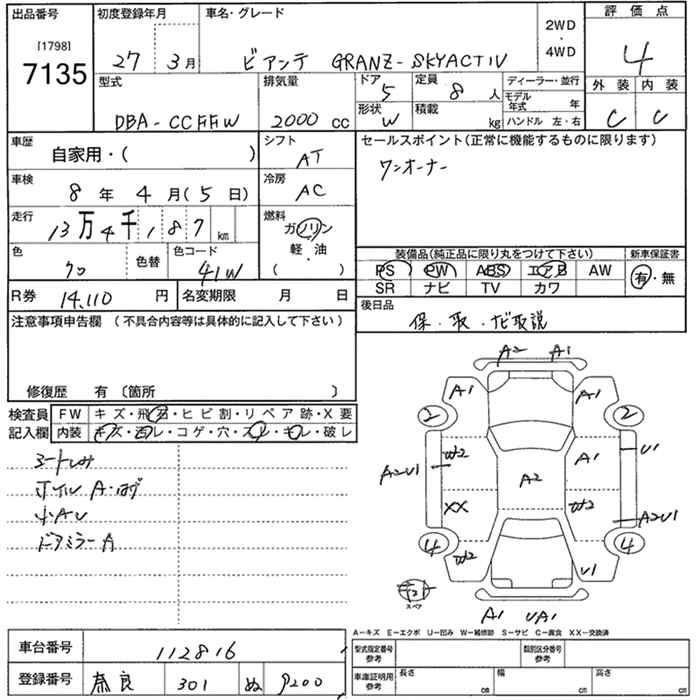 出品番号 初度登録年月 車名・グレード 2WD・4WD 評価点
[1798]
7135 27 3月 ビアンテ GRANZ-SKYACTIV 4
型式 排気量 ドア 5 定員 8 人 ディーラー・並行 外装 内装
形状 W 積載 kg モデル年式 年
DBA-CCFFW 2000 CC ハンドル 左・右 C C
車歴 自家用・( ) シフト AT セールスポイント(正常に機能するものに限ります)
ワンオーナー
車検 8年 4月(5日) 冷房 AC
走行 13万4千187 km 燃料 ガソリン・軽・油 ( )
色 色替 色コード 41W
クロ
装備品(純正品に限り丸をつけて下さい) 新車保証書
PS PW ABS エアB AW 有・無
SR ナビ TV カワ
R券 14,110 円 名変期限 月 日 後日品
保・取・ナビ取説
注意事項申告欄 (不具合内容等は具体的に記入して下さい)
修復歴 有 〔箇所 〕
検査員 FW キズ・飛石・ヒビ割・リペア跡・X要
記入欄 内装 キズ・汚レ・コゲ・穴・スレ・キレ・破レ
ホイル A・ハゲ
小AU
ドアミラーA
A2 A1
A1 A1
2 2
W2 A1 U1
A2U1 A2
XX W2 A2U1
4 4
W2 U1
スペア
A1 UA1
A-キズ E-エクボ U-凹み W-補修跡 S-サビ C-腐食 XX-交換済
車台番号 112816
登録番号 奈良 301 ぬ 9200
型式指定番号 参考 類別区分番号 参考
車庫証明用 参考 長さ cm 幅 cm 高さ cm